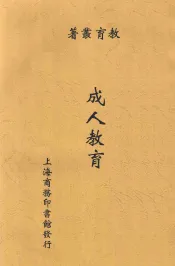 教育叢著
成人教育
上海商務印書館發行